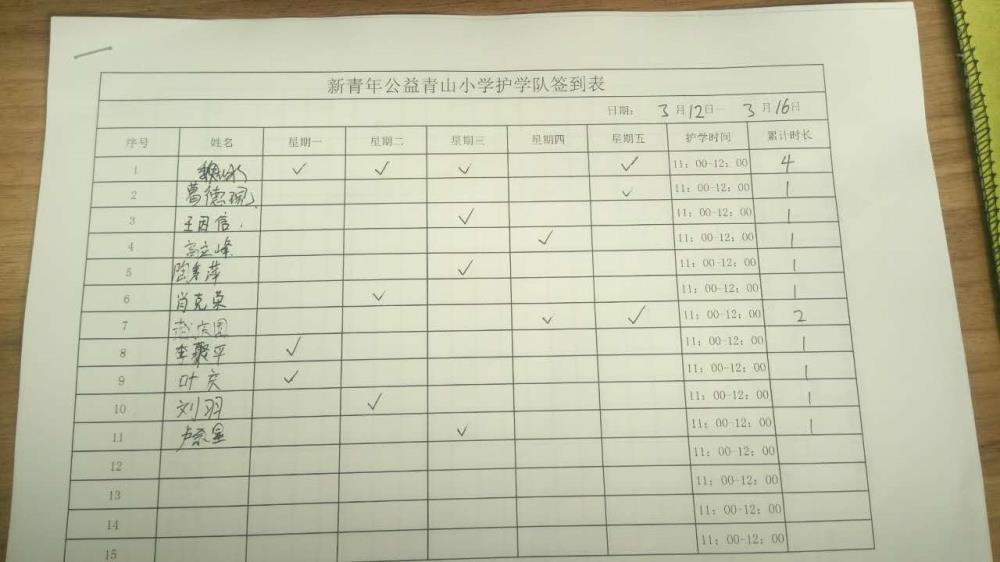 新青年公益青山小学护学队签到表
日期: 3月12日— 3月16日
序号 姓名 星期一 星期二 星期三 星期四 星期五 护学时间 累计时长
1 ✓ ✓ ✓ ✓ 11:00-12:00 4
2 葛德 ✓ 11:00-12:00 1
3 王因信. ✓ 11:00-12:00 1
4 高立峰 ✓ 11:00-12:00 1
5 陶 萍 ✓ 11:00-12:00 1
6 肖克荣 ✓ 11:00-12:00 1
7 赵庆国 ✓ ✓ 11:00-12:00 2
8 李聚平 ✓ 11:00-12:00 1
9 叶庆 ✓ 11:00-12:00 1
10 刘羽 ✓ 11:00-12:00 1
11 卢 星 ✓ 11:00-12:00 1
12 11:00-12:00
13 11:00-12:00
14 11:00-12:00
15 11:00-12:00